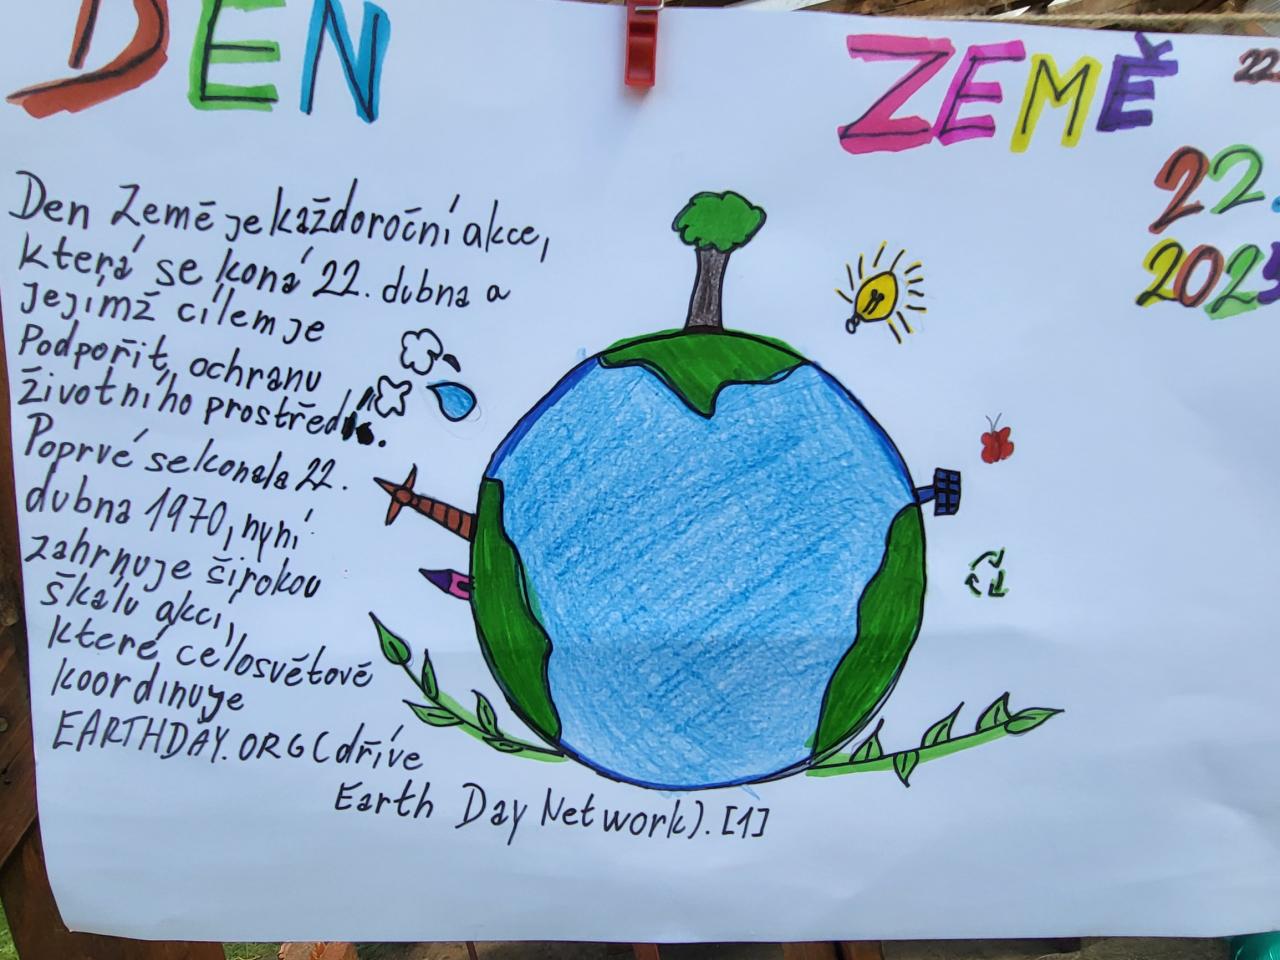 DEN ZEMĚ
22.
22.
2025
Den Země je každoroční akce,
která se koná 22. dubna a
jejímž cílem je
Podpořit ochranu
životního prostředí.
Poprvé se konala 22.
dubna 1970, nyní
zahrnuje širokou
škálu akcí,
které celosvětově
koordinuje
EARTHDAY.ORG (dříve
Earth Day Network). [1]